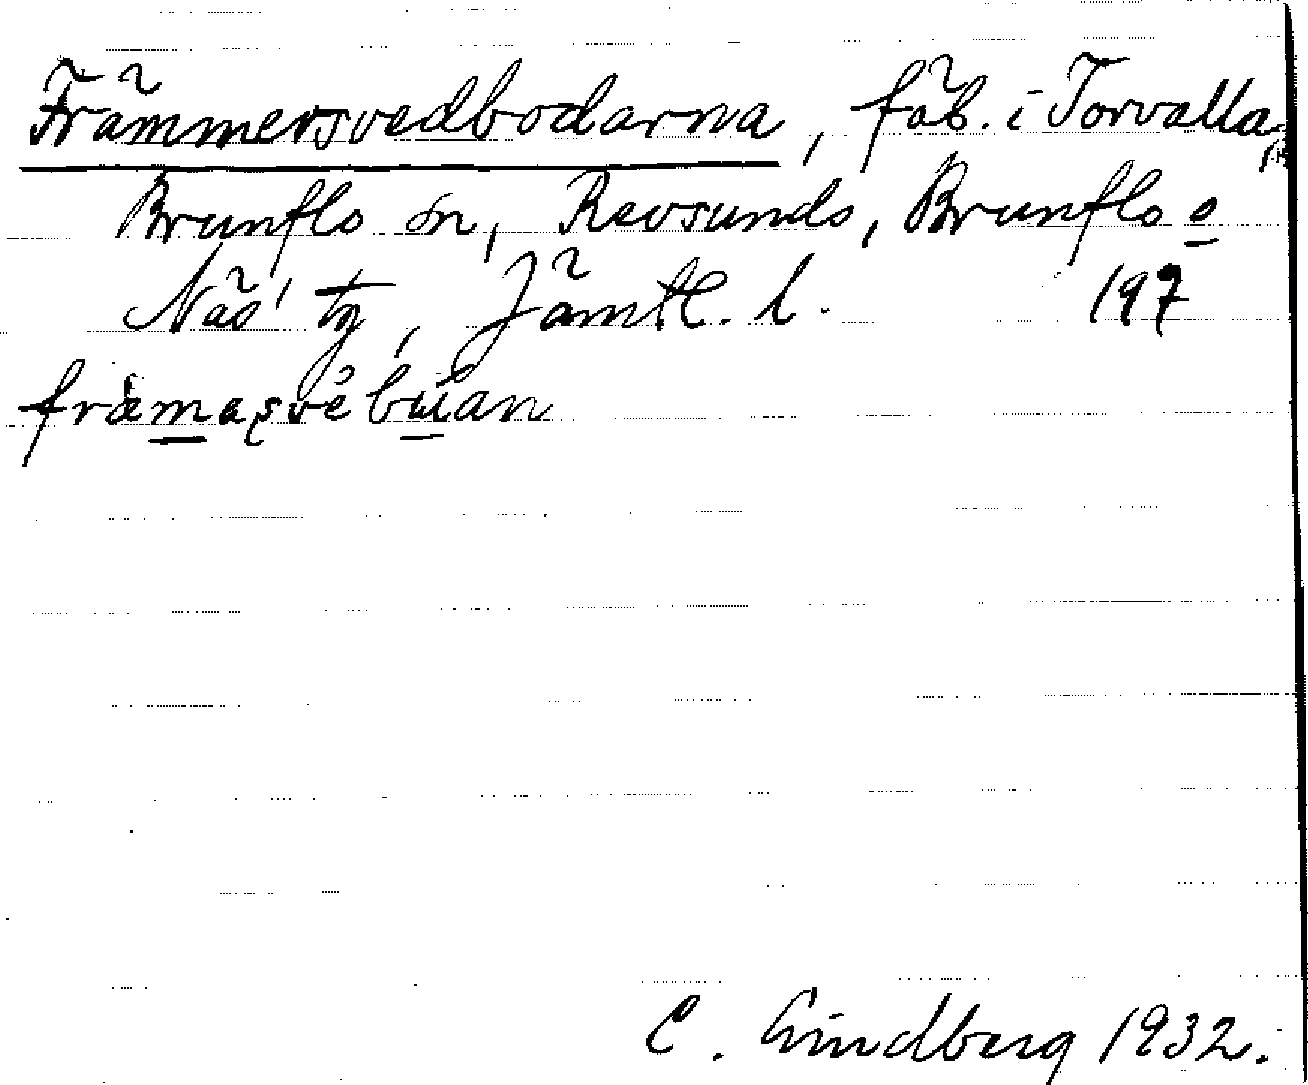 Främmersvedbodarna, fäb. i Torvalla,
Brunflo sn, Revsunds, Brunflo o
Näs' tg, Jämtl. l. 197
främaʂvèbúan
C. Lindberg 1932.